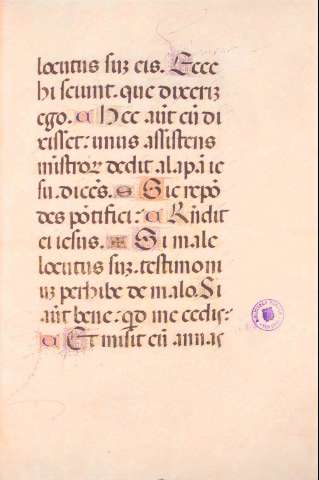 locutus suʒ eis. Ecce
hi sciunt. que dixeriʒ
ego. a Hec aūt cū di
xisset: unus assistens
mīstroꝝ dedit alapā ie
su. dicēs. S Sic repō
des pōtifici: a Rn̄dit
ei iesus. ✠ Si male
locutus suʒ. testimoni
uʒ perhibe de malo. Si
aūt bene: qd me cedis:
a Et misit eū annas